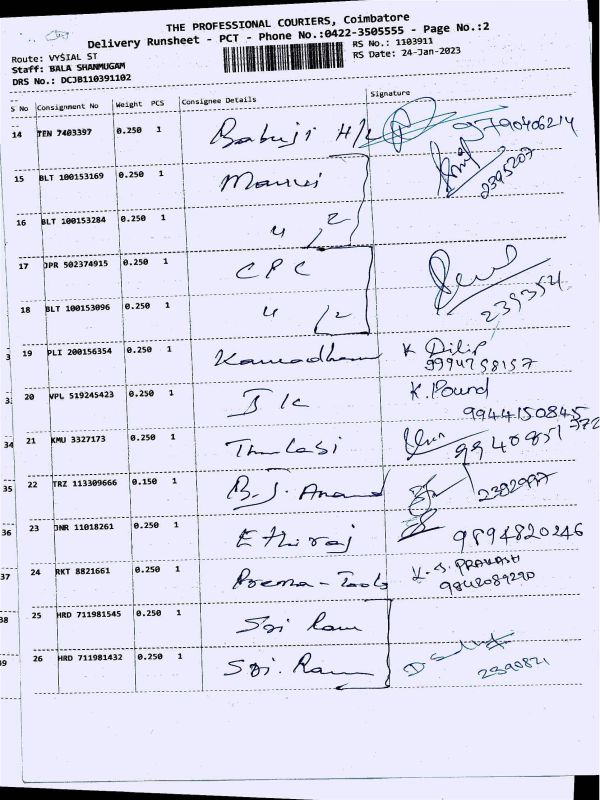 THE PROFESSIONAL COURIERS, Coimbatore
Delivery Runsheet - PCT - Phone No.:0422-3505555 - Page No.:2
Route: VYSIAL ST
RS No.: 1103911
Staff: BALA SHANMUGAM
RS Date: 24-Jan-2023
DRS No.: DCJB110391102
S No Consignment No Weight PCS Consignee Details Signature
14 TEN 7403397 0.250 1 Babuji H/L 9790406214
15 BLT 100153169 0.250 1 2395207
16 BLT 100153284 0.250 1 4 /2
17 JPR 502374915 0.250 1 CPC
18 BLT 100153096 0.250 1 4 /2 239354
3 19 PLI 200156354 0.250 1 K Dilip
9994758157
3 20 VPL 519245423 0.250 1 J K K. Pound
9944150845
34 21 KMU 3327173 0.250 1 Thulasi 9940851372
35 22 TRZ 113309666 0.150 1 B.J. Anand
36 23 JNR 11018261 0.250 1 Ethiraj 9894820246
37 24 RKT 8821661 0.250 1 Prema-Tools K.S. PRAKASH
9842089290
38 25 HRD 711981545 0.250 1 Sri Ram
39 26 HRD 711981432 0.250 1 Sri. Ram 2390821